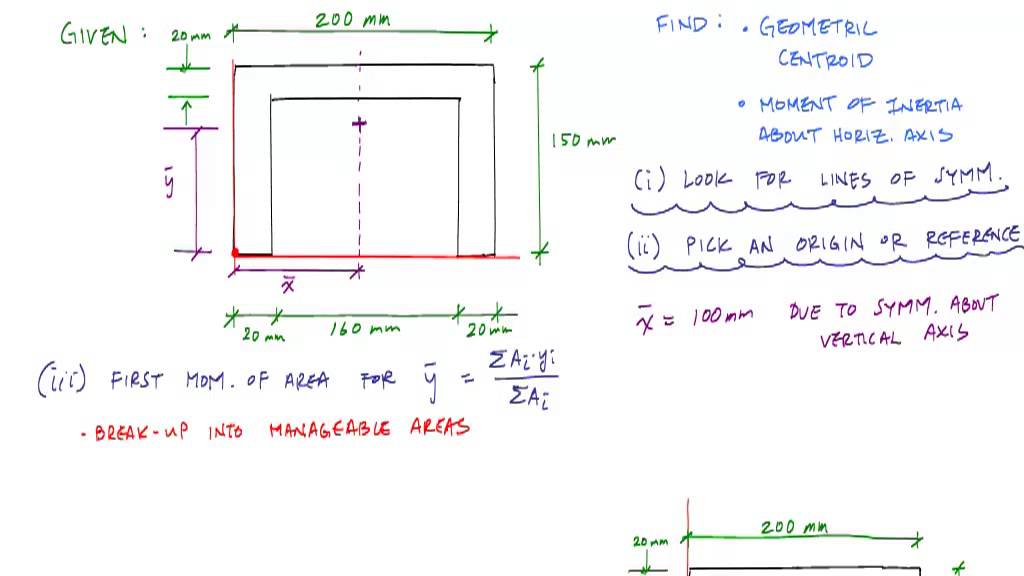 GIVEN :
200 mm
20mm
ȳ
150 mm
x̄
20mm
160 mm
20mm
FIND : • GEOMETRIC
CENTROID
• MOMENT OF INERTIA
ABOUT HORIZ. AXIS
(i) LOOK FOR LINES OF SYMM.
(ii) PICK AN ORIGIN OR REFERENCE
x̄ = 100mm DUE TO SYMM. ABOUT
VERTICAL AXIS
(iii) FIRST MOM. OF AREA FOR ȳ = ΣAi·yi / ΣAi
• BREAK-UP INTO MANAGEABLE AREAS
200 mm
20mm